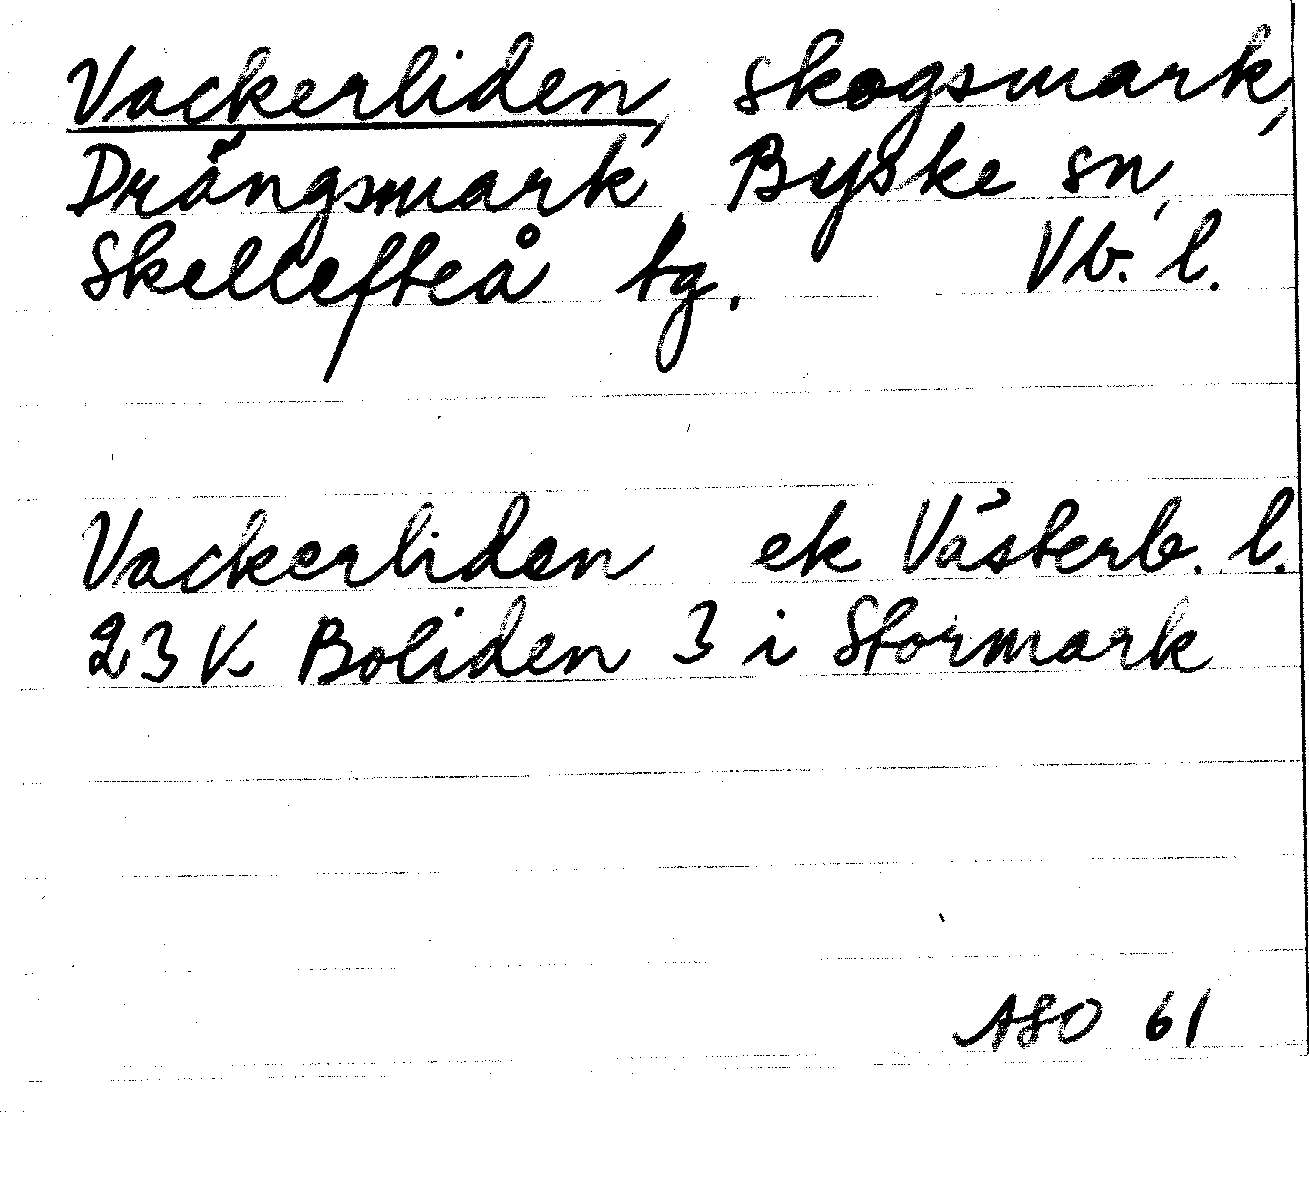 Vackerliden, Skogsmark,
Drängsmark Byske sn,
Skellefteå tg. Vb. l.
Vackerliden ek Västerb. l.
23 K Boliden 3 i Stormark
ASO 61